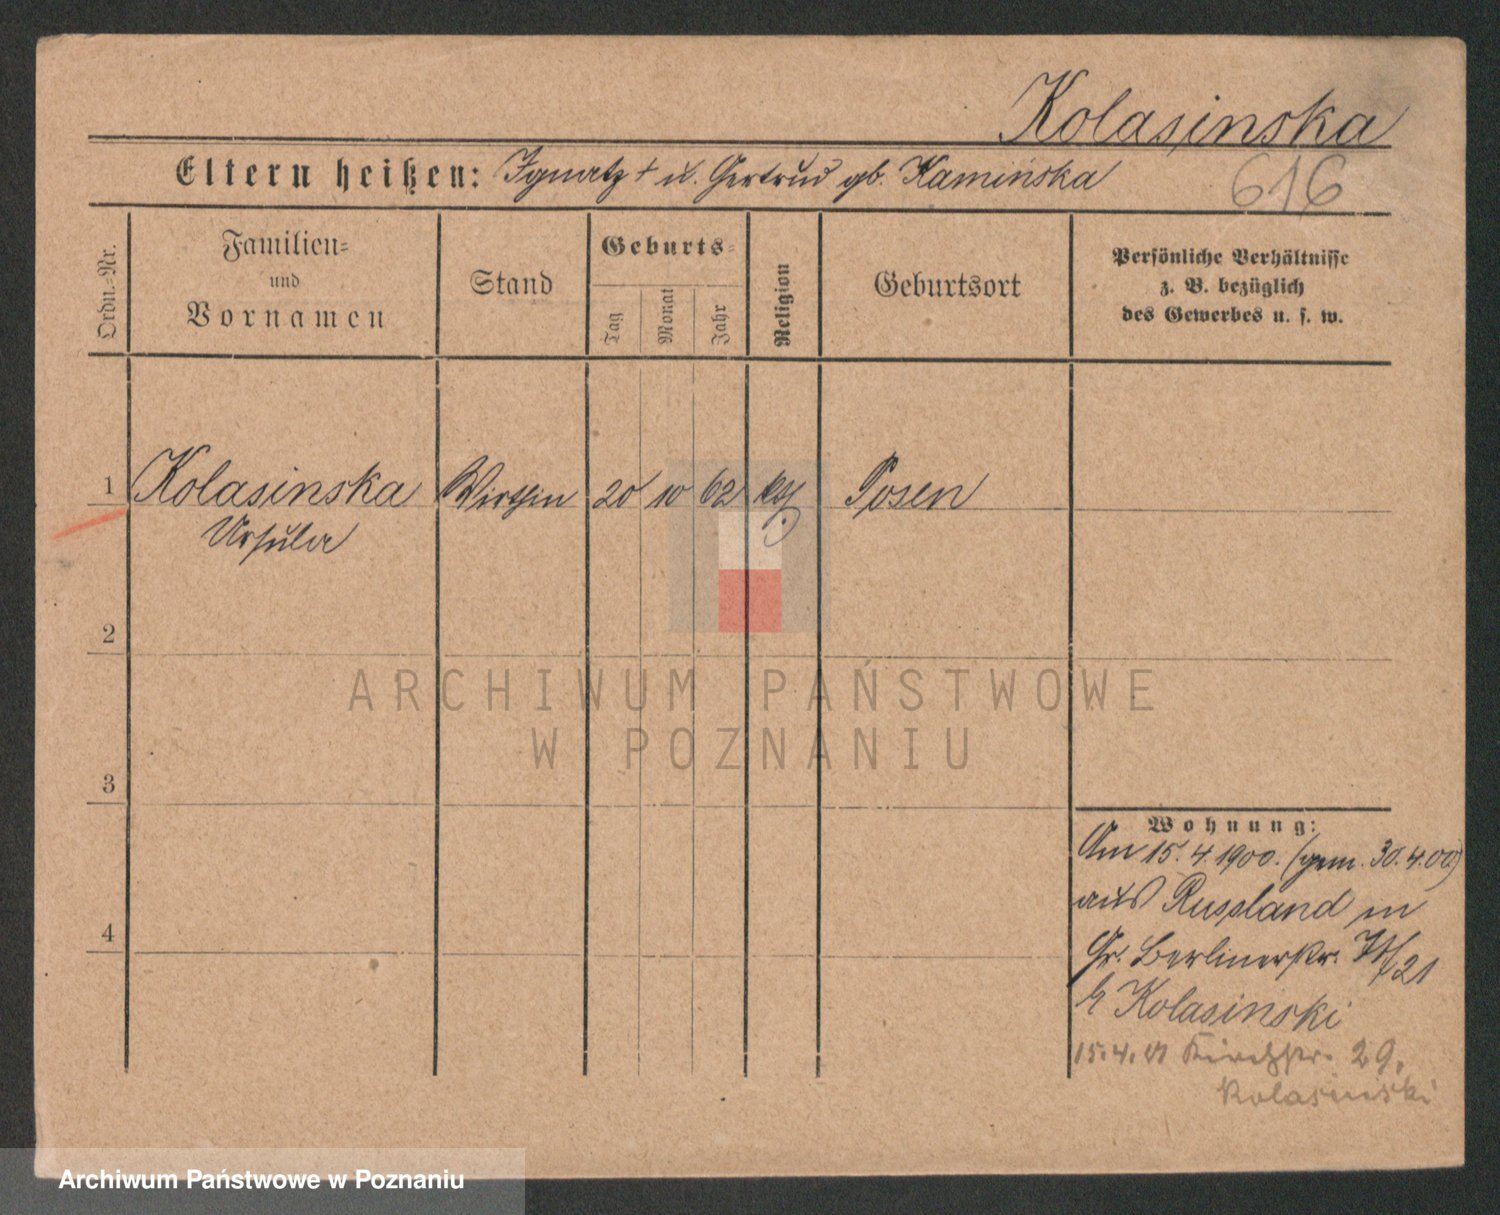 Kolasinska
Eltern heißen: Ignatz + u. Gertrud gb. Kamińska
616
Ordn.-Nr.
Familien-
und
Vornamen
Stand
Geburts-
Tag
Monat
Jahr
Religion
Geburtsort
Persönliche Verhältnisse
z. B. bezüglich
des Gewerbes u. s. w.
1 Kolasinska Wirthin 20 10 62 kth Posen
Ursula
2
3
4
ARCHIWUM PAŃSTWOWE
W POZNANIU
Wohnung:
Am 15.4.1900. (gem. 30.4.00)
aus Russland in
Gr. Berlinerstr. 21
b Kolasinski
15.4.01 Kirchstr. 29.
Kolasinski
Archiwum Państwowe w Poznaniu